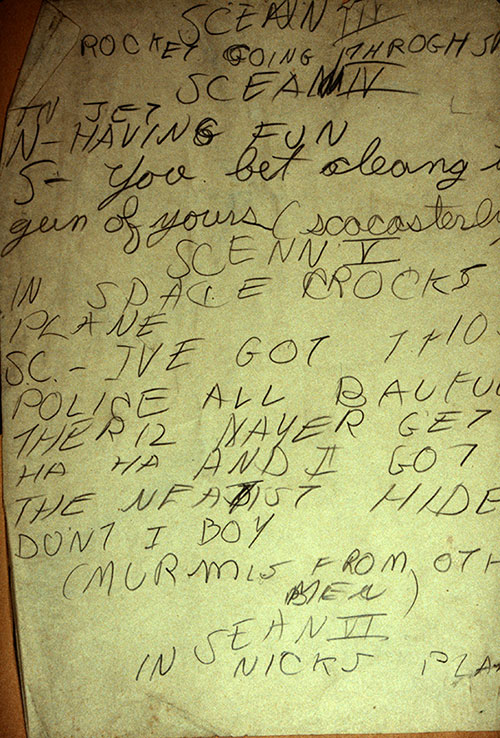 SCEAN III
ROCKET GOING THROGH
SCEAN IV
IN JET
N-HAVING FUN
S- You bet cleang
gun of yours (
SCENN V
IN SPACE CROCKS
PLANE
SC.- IVE GOT
POLICE ALL BAUFU
THER12 NAYER GET
HA HA AND I GOT
THE NEATIST HIDE
DONT I BOY
(MURMLS FROM OTH
MEN)
SEAN VI
IN NICKS PLA